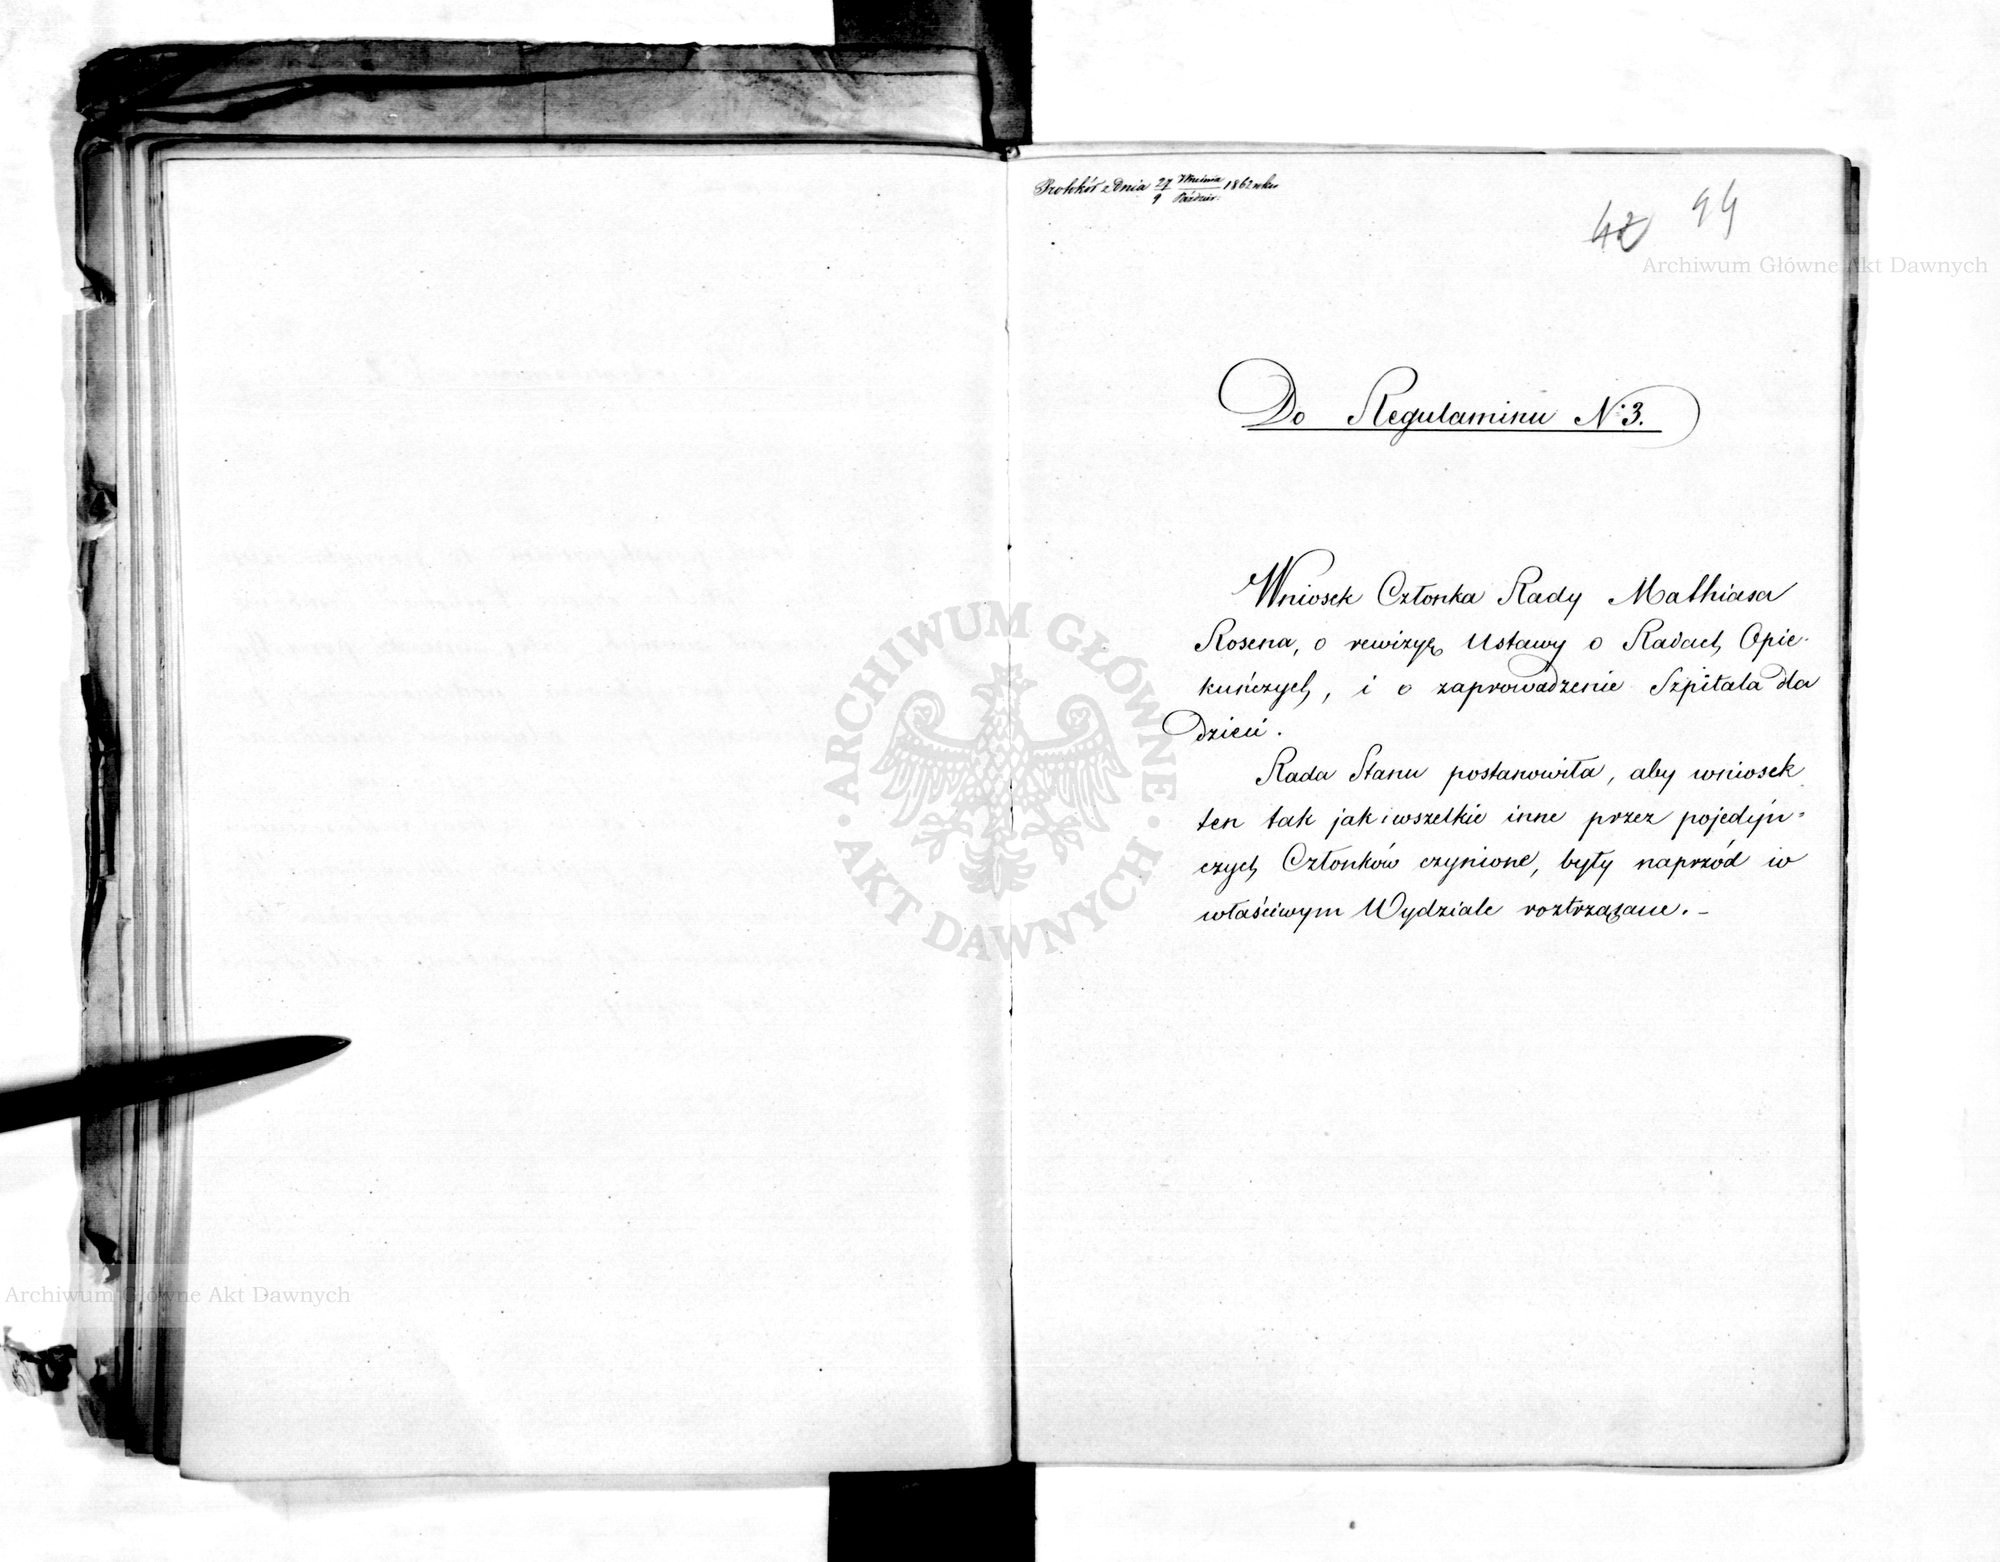 Protokół z Dnia 27 Września / 9 Paździer: 1862 roku
42 94
Archiwum Główne Akt Dawnych
Do Regulaminu N: 3.
Wniosek Członka Rady Mathiasa
Rosena, o rewizyę Ustawy o Radach Opie-
kuńczych, i o zaprowadzenie Szpitala dla
Dzieci.
Rada Stanu postanowiła, aby wniosek
ten tak jak i wszelkie inne przez pojedyń=
czych Członków czynione, były naprzód w
właściwym Wydziale roztrząsane. –
ARCHIWUM GŁÓWNE · AKT DAWNYCH ·
Archiwum Główne Akt Dawnych